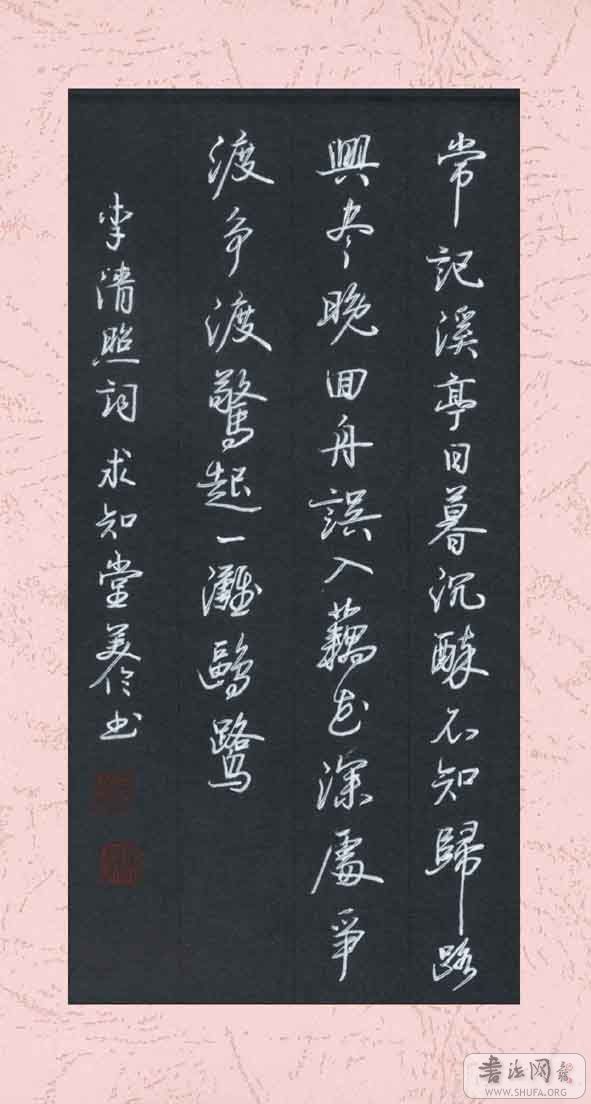 常記溪亭日暮沉醉不知歸路
興盡晚回舟誤入藕花深處爭
渡爭渡驚起一灘鷗鷺
李清照詞 求知堂美伶书
書法网
WWW.SHUFA.ORG